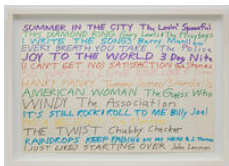 SUMMER IN THE CITY The Lovin' Spoonful
THIS DIAMOND RING Gary Lewis & The Playboys
I WRITE THE SONGS Barry Manilow
EVERY BREATH YOU TAKE The Police
JOY TO THE WORLD 3 Dog Nite
I CAN'T GET NO SATISFACTION Stones
HANKY PANKY
AMERICAN WOMAN The Guess Who
WINDY The Association
IT'S STILL ROCK & ROLL TO ME Billy Joel
THE TWIST Chubby Checker
RAINDROPS KEEP FALLING ON MY HEAD B.J. Thomas
(JUST LIKE) STARTING OVER John Lennon